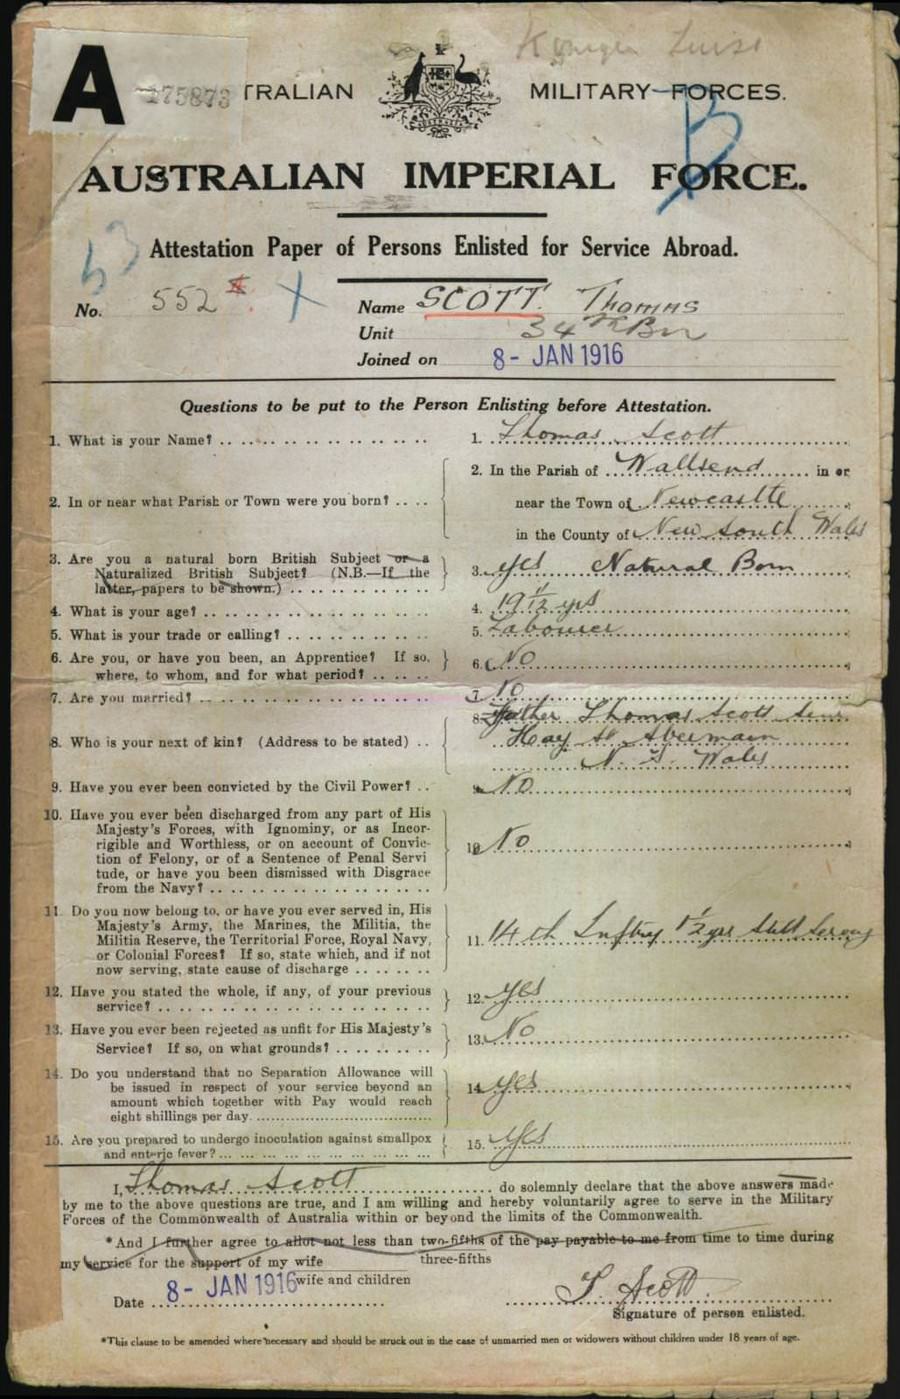 A 175873 TRALIAN MILITARY FORCES.
B
AUSTRALIAN IMPERIAL FORCE.
Attestation Paper of Persons Enlisted for Service Abroad.
No. 552 X Name SCOTT Thomas
Unit 34th Bn
Joined on 8- JAN 1916
Questions to be put to the Person Enlisting before Attestation.
1. What is your Name? 1. Thomas Scott
2. In the Parish of Wallsend in or
2. In or near what Parish or Town were you born? near the Town of Newcastle
in the County of New South Wales
3. Are you a natural born British Subject or a
Naturalized British Subject? (N.B.—If the 3. yes Natural Born
latter, papers to be shown.)
4. What is your age? 4. 19 1/2 yrs
5. What is your trade or calling? 5. Labourer
6. Are you, or have you been, an Apprentice? If so, 6. No
where, to whom, and for what period?
7. Are you married? 7. No
8. Father Thomas Scott Senr
8. Who is your next of kin? (Address to be stated) Hay St Abermain
N. S. Wales
9. Have you ever been convicted by the Civil Power? 9. No
10. Have you ever been discharged from any part of His
Majesty's Forces, with Ignominy, or as Incor-
rigible and Worthless, or on account of Convic- 10. No
tion of Felony, or of a Sentence of Penal Servi
tude, or have you been dismissed with Disgrace
from the Navy?
11. Do you now belong to, or have you ever served in, His
Majesty's Army, the Marines, the Militia, the
Militia Reserve, the Territorial Force, Royal Navy, 11. 14th Inftry 1 1/2 yrs Still Serving
or Colonial Forces? If so, state which, and if not
now serving, state cause of discharge
12. Have you stated the whole, if any, of your previous 12. yes
service?
13. Have you ever been rejected as unfit for His Majesty's 13. No
Service? If so, on what grounds?
14. Do you understand that no Separation Allowance will
be issued in respect of your service beyond an 14. yes
amount which together with Pay would reach
eight shillings per day.
15. Are you prepared to undergo inoculation against smallpox 15. yes
and enteric fever?
I, Thomas Scott do solemnly declare that the above answers made
by me to the above questions are true, and I am willing and hereby voluntarily agree to serve in the Military
Forces of the Commonwealth of Australia within or beyond the limits of the Commonwealth.
*And I further agree to allot not less than two-fifths of the pay payable to me from time to time during
three-fifths
my service for the support of my wife
wife and children
Date 8- JAN 1916 T. Scott
Signature of person enlisted.
*This clause to be amended where necessary and should be struck out in the case of unmarried men or widowers without children under 18 years of age.